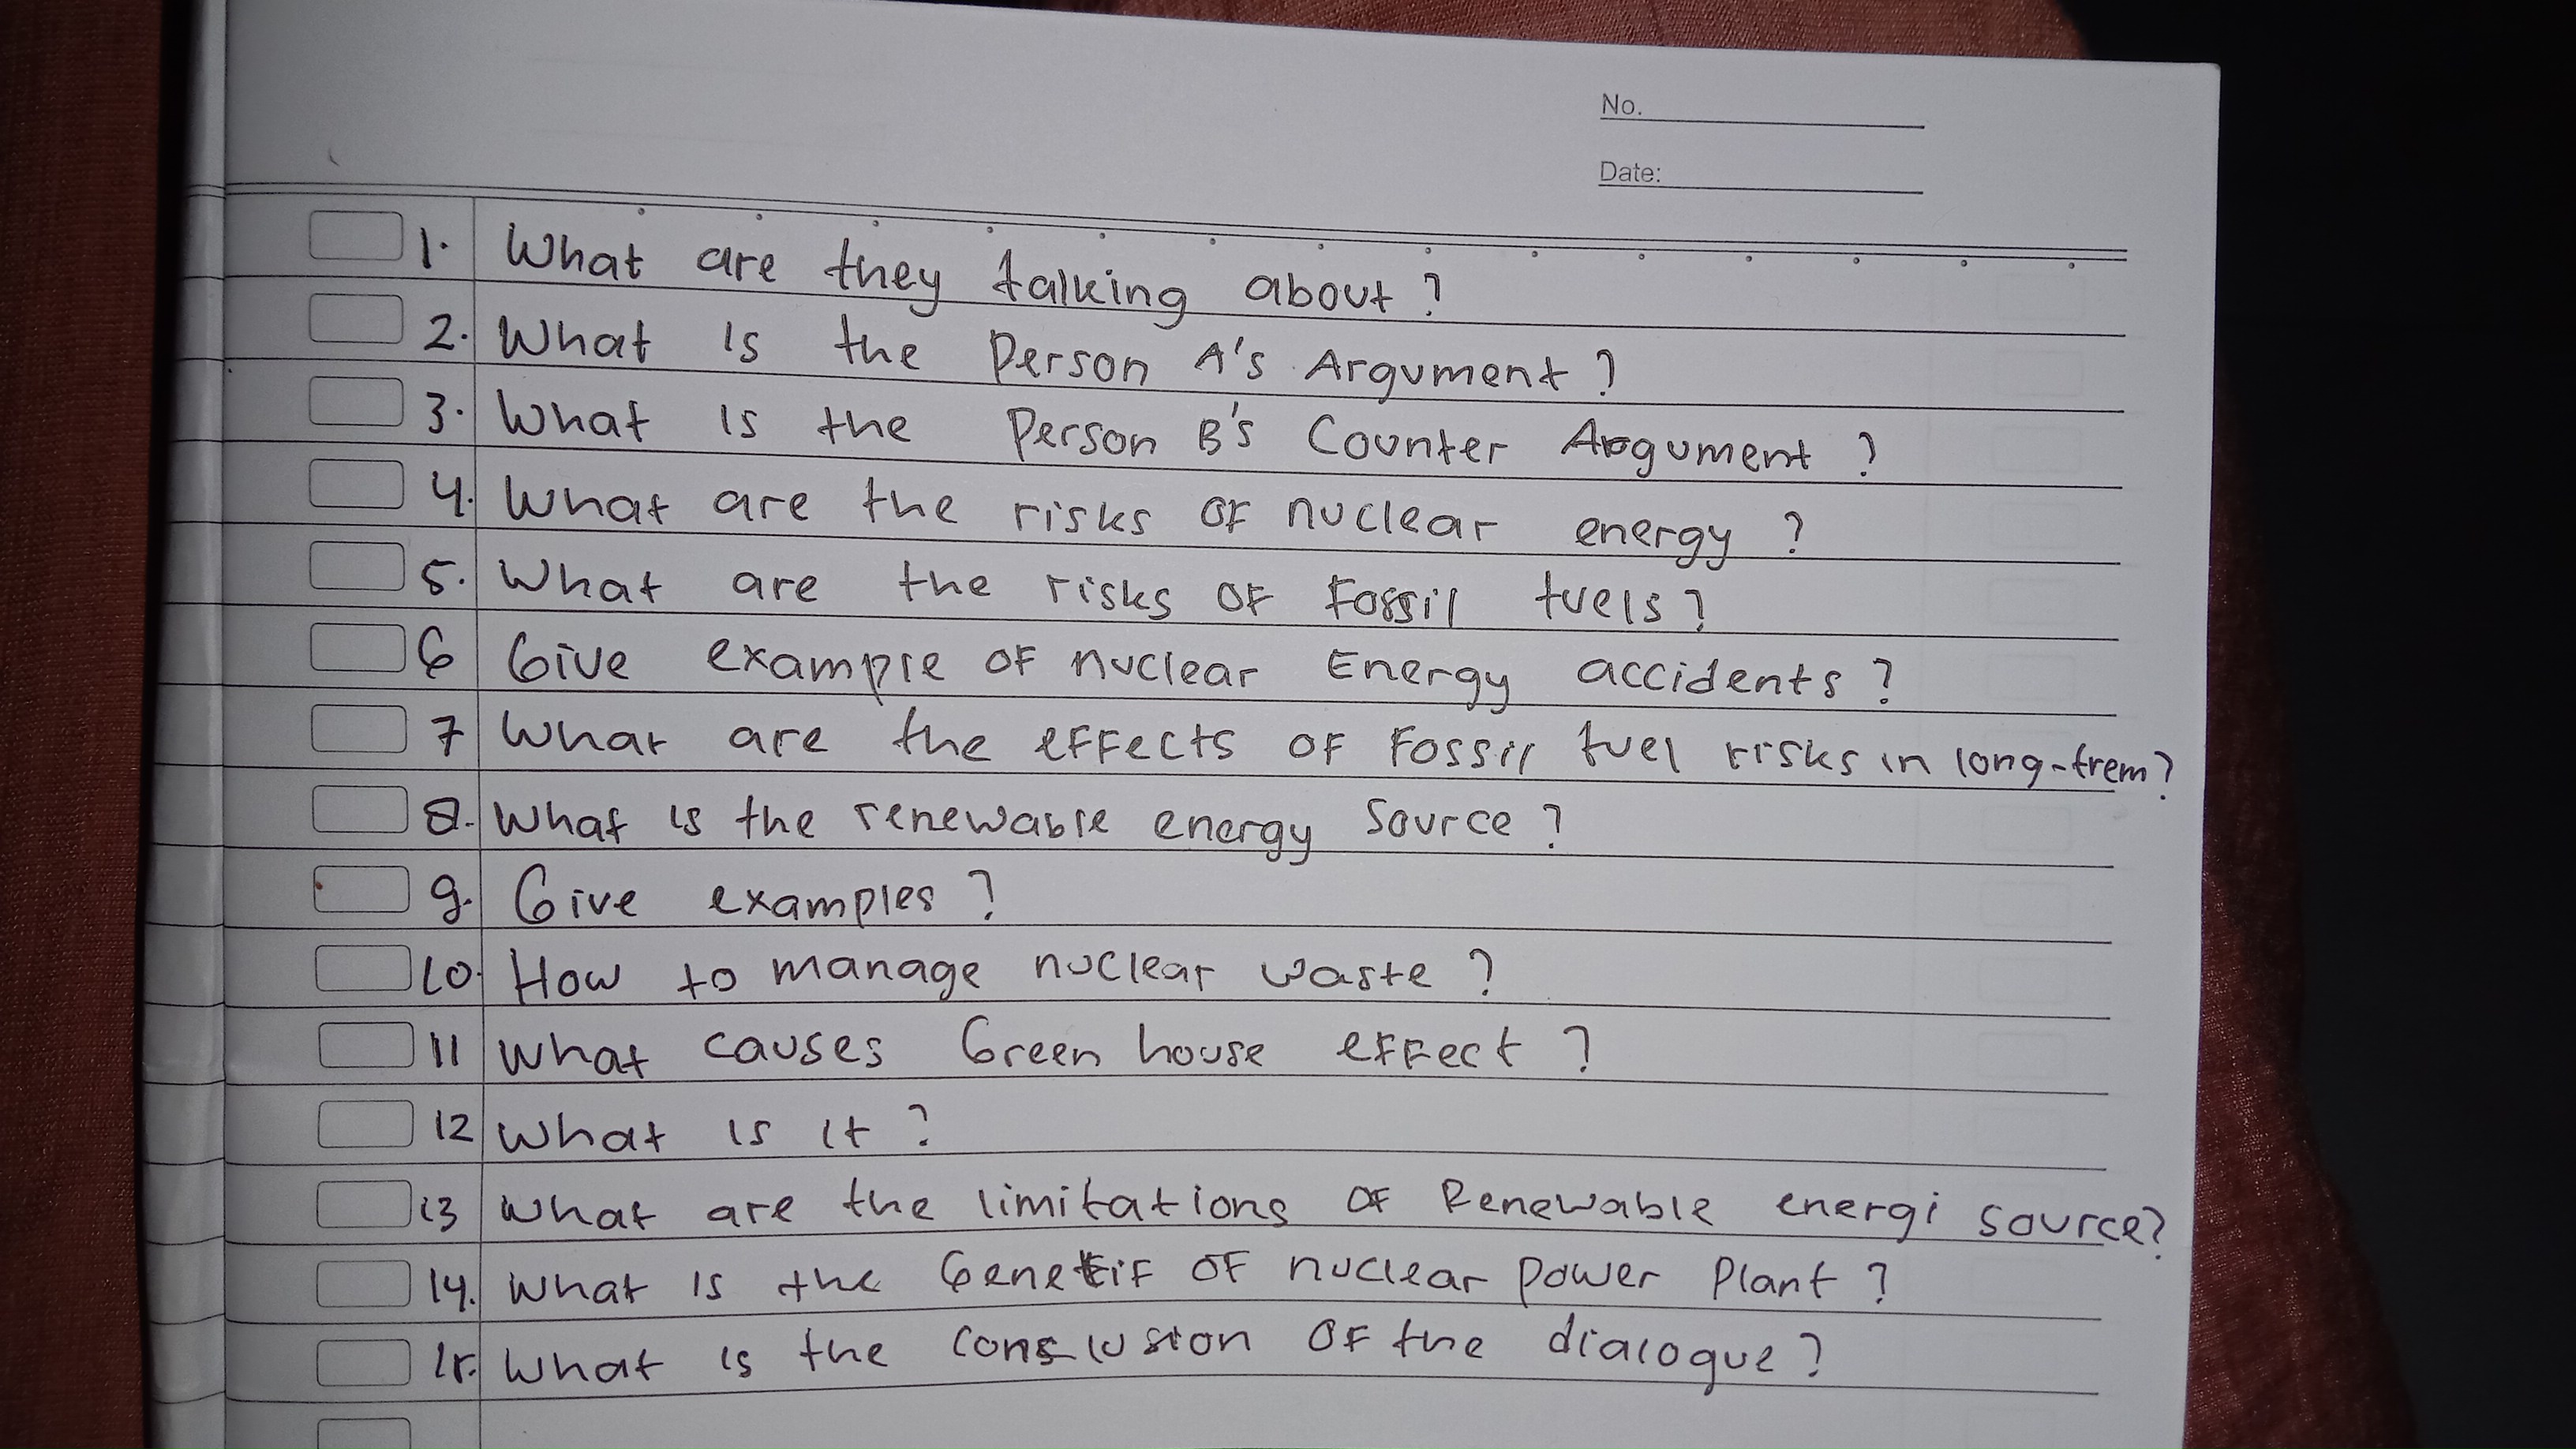 No.
Date:
1. What are they talking about?
2. What is the Person A's Argument?
3. What is the Person B's Counter Argument?
4. What are the risks of nuclear energy?
5. What are the risks of Fossil fuels?
6 Give example of nuclear Energy accidents?
7 What are the effects of Fossil fuel risks in long-trem?
8. What is the renewable energy source?
9. Give examples?
10. How to manage nuclear waste?
11 What causes Green house effect?
12 What is it?
13 What are the limitations of Renewable energi source?
14. What is the of nuclear power plant?
15. What is the conslusion of the dialogue?